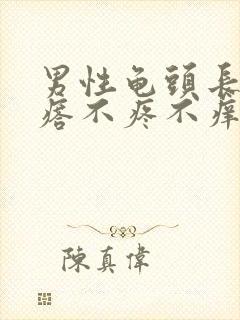 男性龟頭長
痞不疼不痒
陳真偉